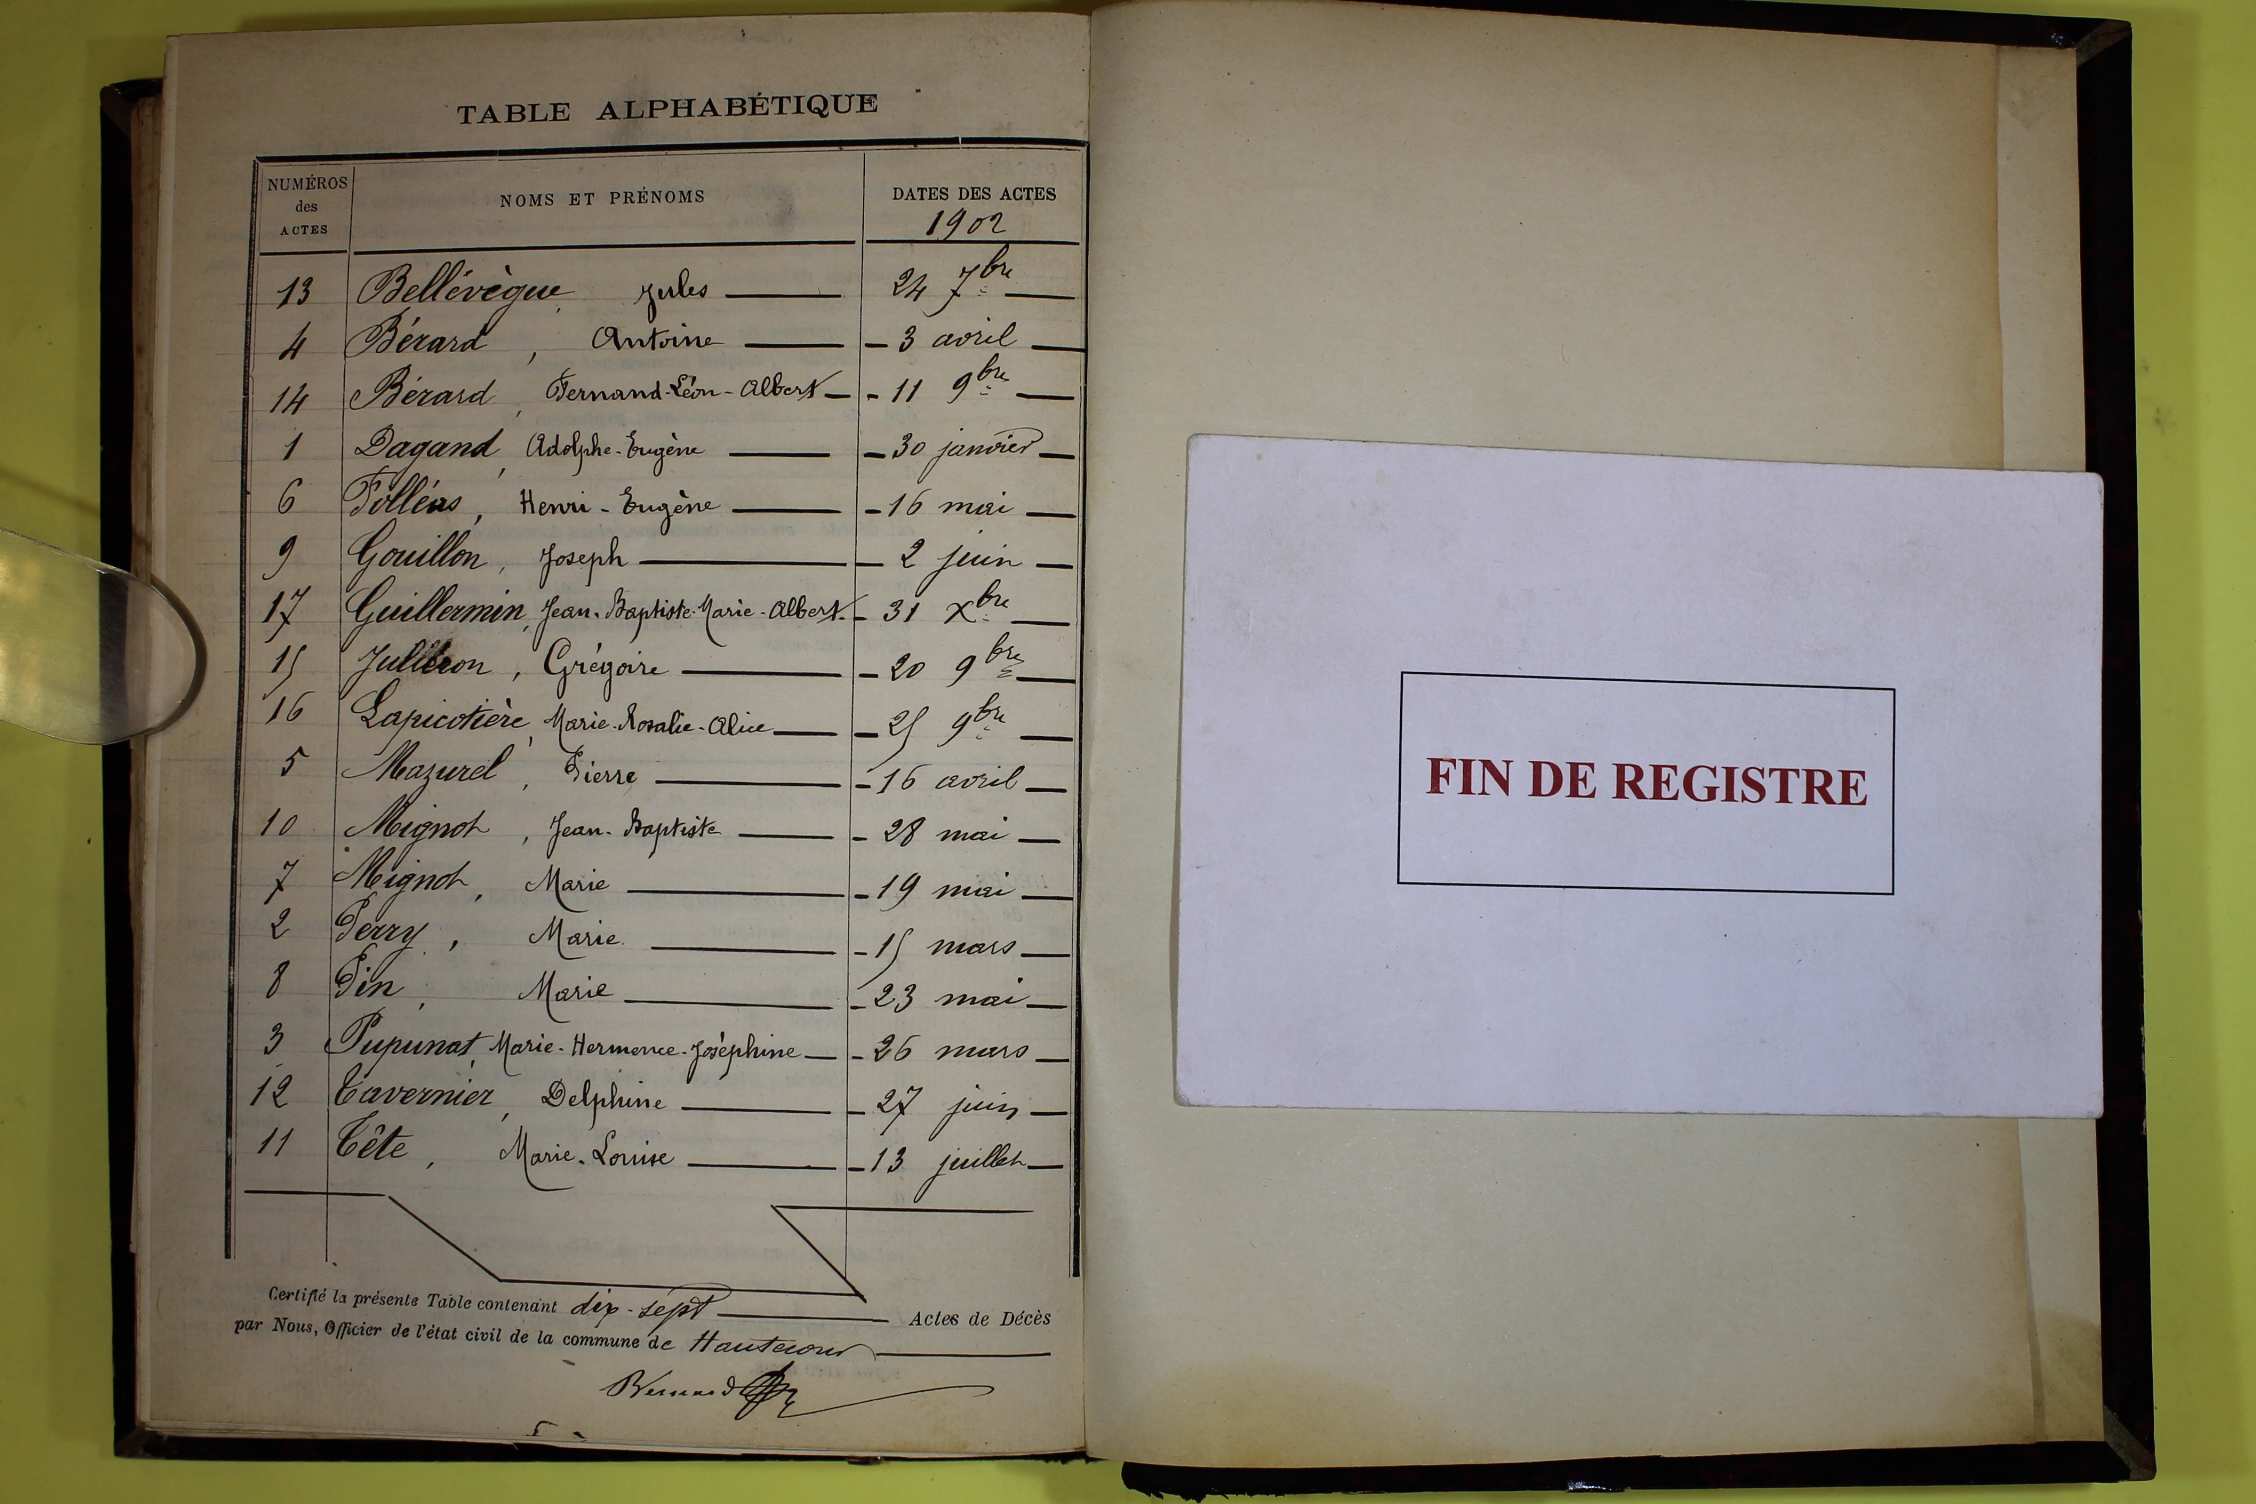 TABLE ALPHABÉTIQUE
NUMÉROS des ACTES
NOMS ET PRÉNOMS
DATES DES ACTES
1902
13 Bellévègue, Jules 24 7bre
4 Bérard, Antoine 3 avril
14 Bérard, Fernand-Léon-Albert 11 9bre
1 Dagand, Adolphe-Eugène 30 janvier
6 Folléas, Henri-Eugène 16 mai
9 Gouillon, Joseph 2 juin
17 Guillermin, Jean-Baptiste-Marie-Albert 31 Xbre
15 Grégoire 20 9bre
16 Lapicotière, Marie-Rosalie-Alice 25 9bre
5 Mazurel, Pierre 16 avril
10 Mignot, Jean-Baptiste 28 mai
7 Mignot, Marie 19 mai
2 Perry, Marie 15 mars
8 Pin, Marie 23 mai
3 Pupunat, Marie-Hermence-Joséphine 26 mars
12 Tavernier, Delphine 27 juin
11 Tête, Marie-Louise 13 juillet
Certifié la présente Table contenant dix-sept Actes de Décès
par Nous, Officier de l'état civil de la commune de Hautecour
FIN DE REGISTRE